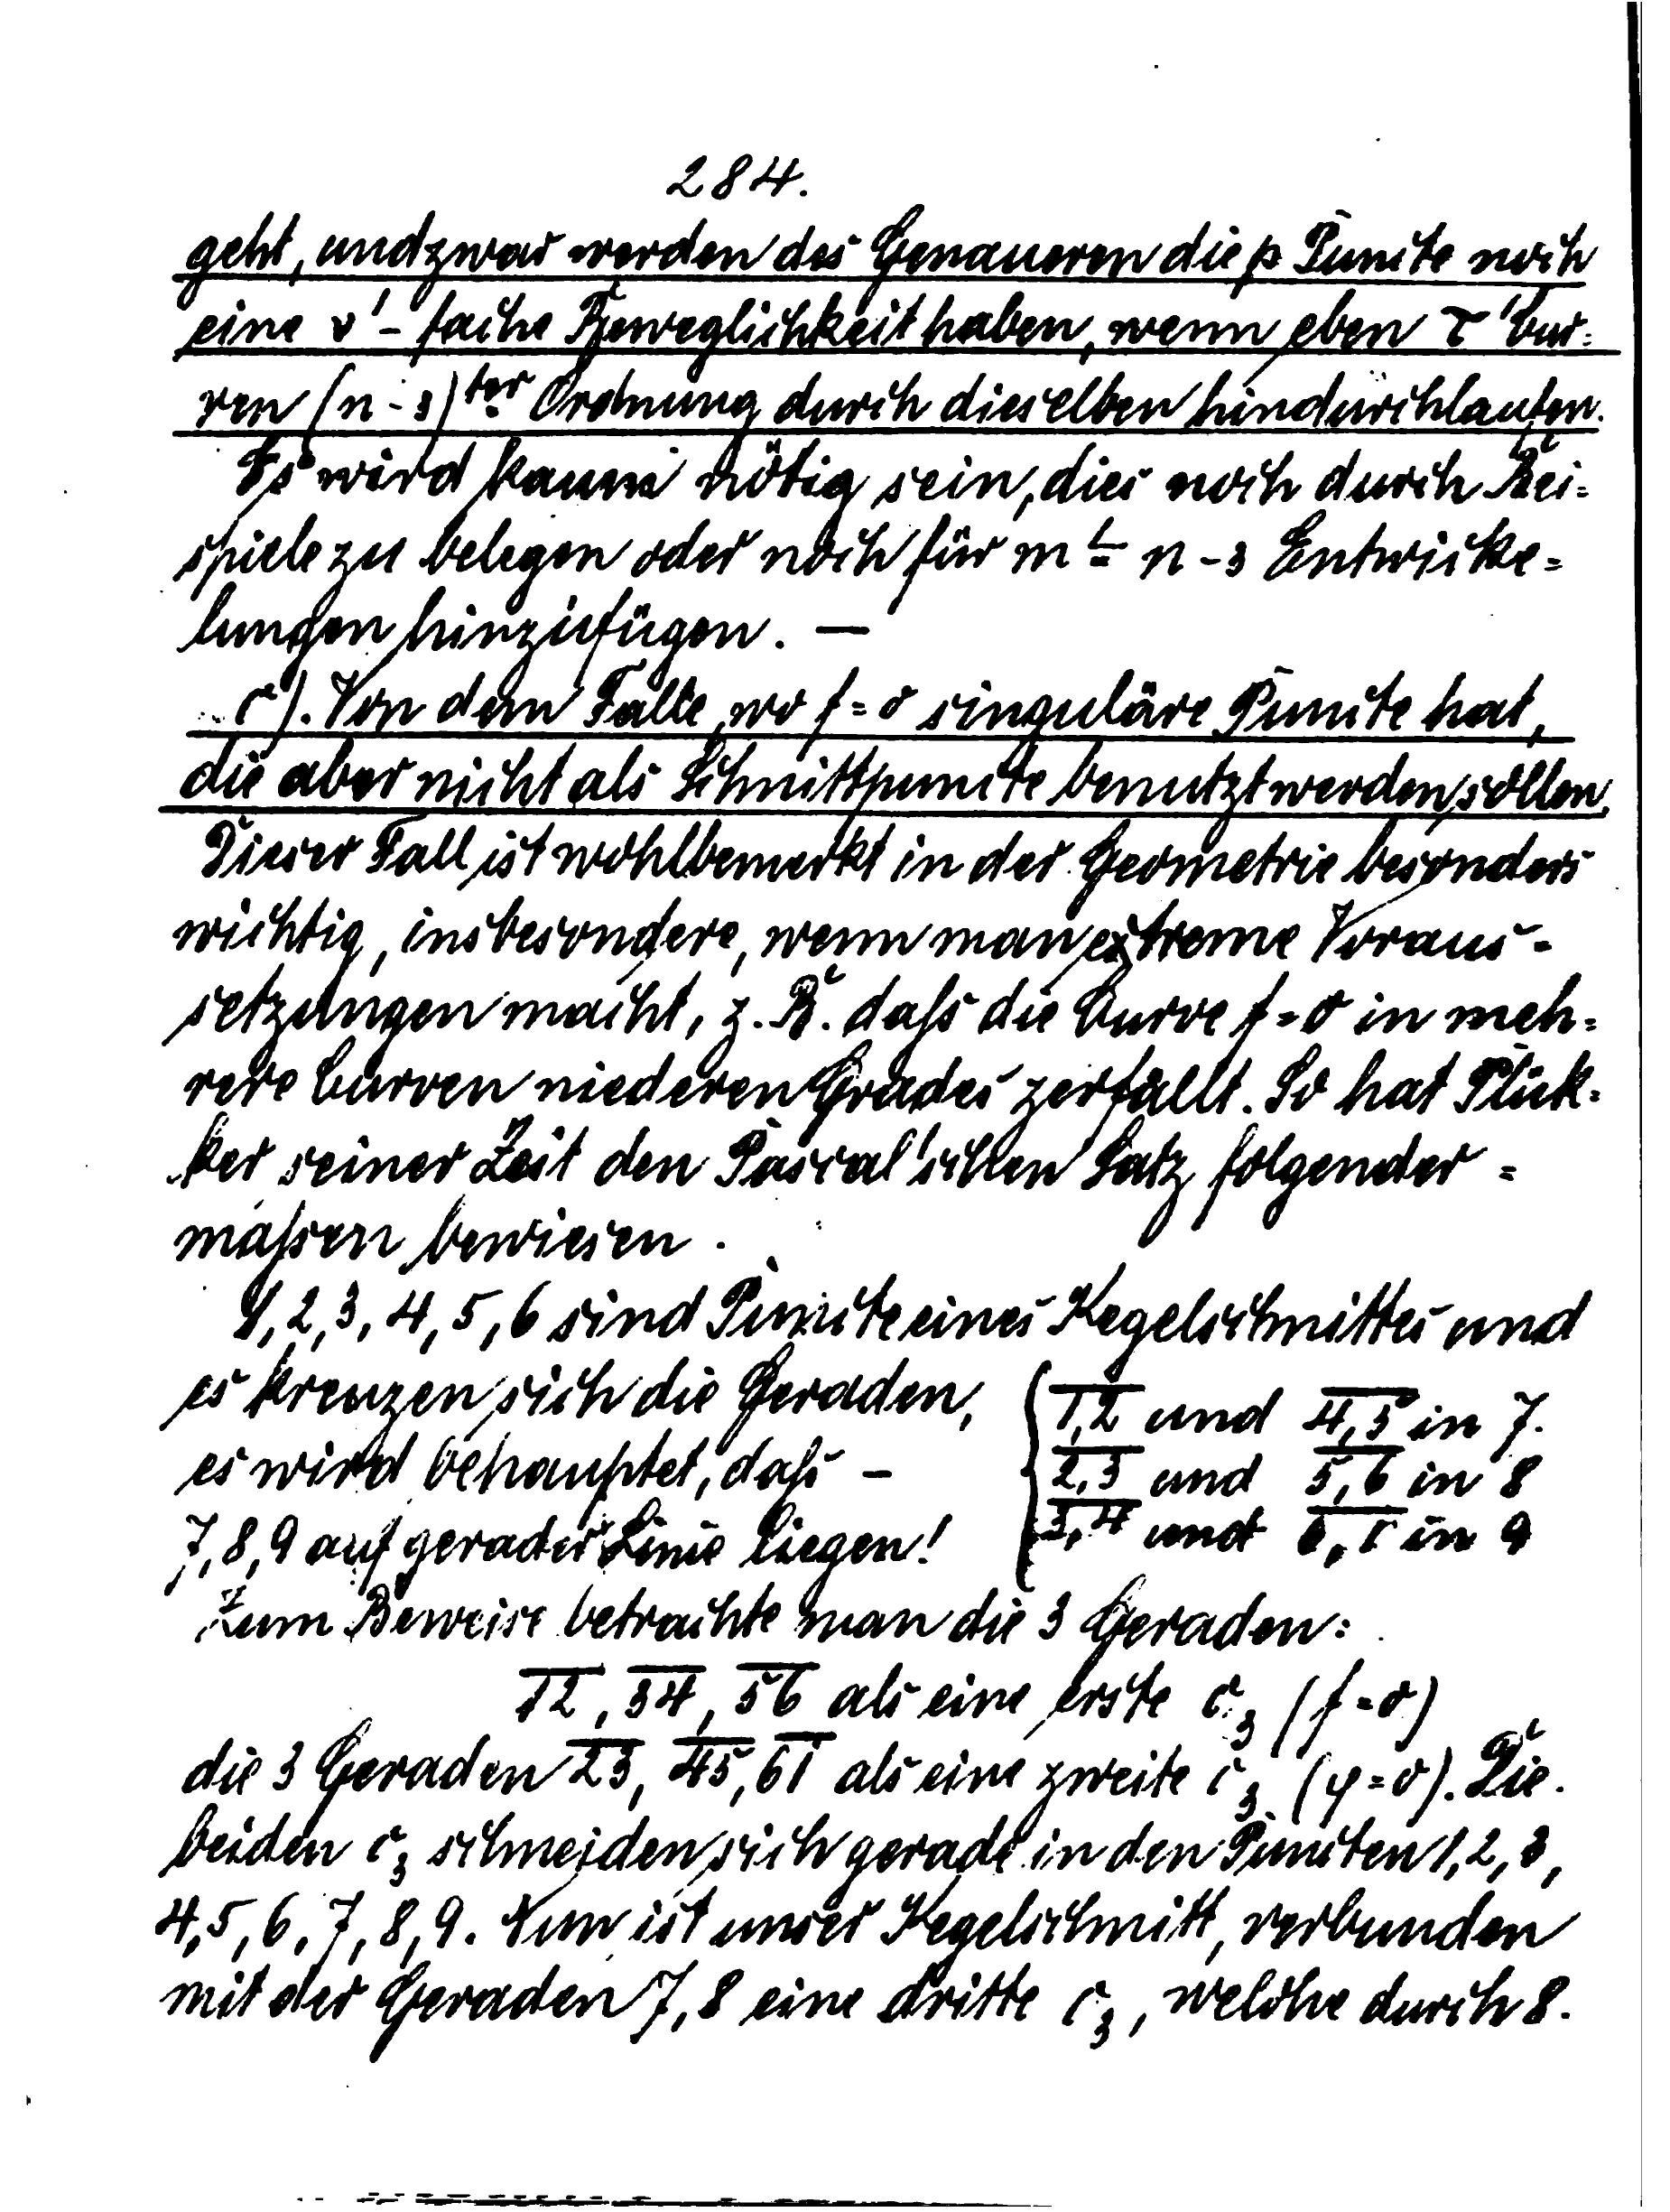 284.
geht, und zwar werden des Genaueren die p Puncte noch
eine ν'-fache Beweglichkeit haben, wenn eben τ' Cur-
ven (n-3)ter Ordnung durch dieselben hindurchlaufen.
Es wird kaum nötig sein, dies noch durch Bei-
spiele zu belegen oder noch für m ≤ n-3 Entwicke-
lungen hinzufügen. —
c). Von dem Falle, wo f=0 singuläre Puncte hat,
die aber nicht als Schnittpuncte benutzt werden sollen.
Dieser Fall ist wohlbemerkt in der Geometrie besonders
wichtig, insbesondere, wenn man extreme Voraus-
setzungen macht, z. B. daſs die Curve f=0 in meh-
rere Curven niederen Grades zerfällt. So hat Plük-
ker seiner Zeit den Pascal'schen Satz folgender-
maſsen bewiesen.
1, 2, 3, 4, 5, 6 sind Puncte eines Kegelschnittes und
es kreuzen sich die Geraden, { 1,2 und 4,5 in 7.
es wird behauptet, daſs — 2,3 und 5,6 in 8
7, 8, 9 auf gerader Linie liegen! 3,4 und 6,1 in 9
Zum Beweise betrachte man die 3 Geraden:
12, 34, 56 als eine erste c₃ (f=0)
die 3 Geraden 23, 45, 61 als eine zweite c₃ (φ=0). Die
beiden c₃ schneiden sich gerade in den Puncten 1, 2, 3,
4, 5, 6, 7, 8, 9. Nun ist unser Kegelschnitt, verbunden
mit der Geraden 7, 8 eine dritte c₃, welche durch 8.